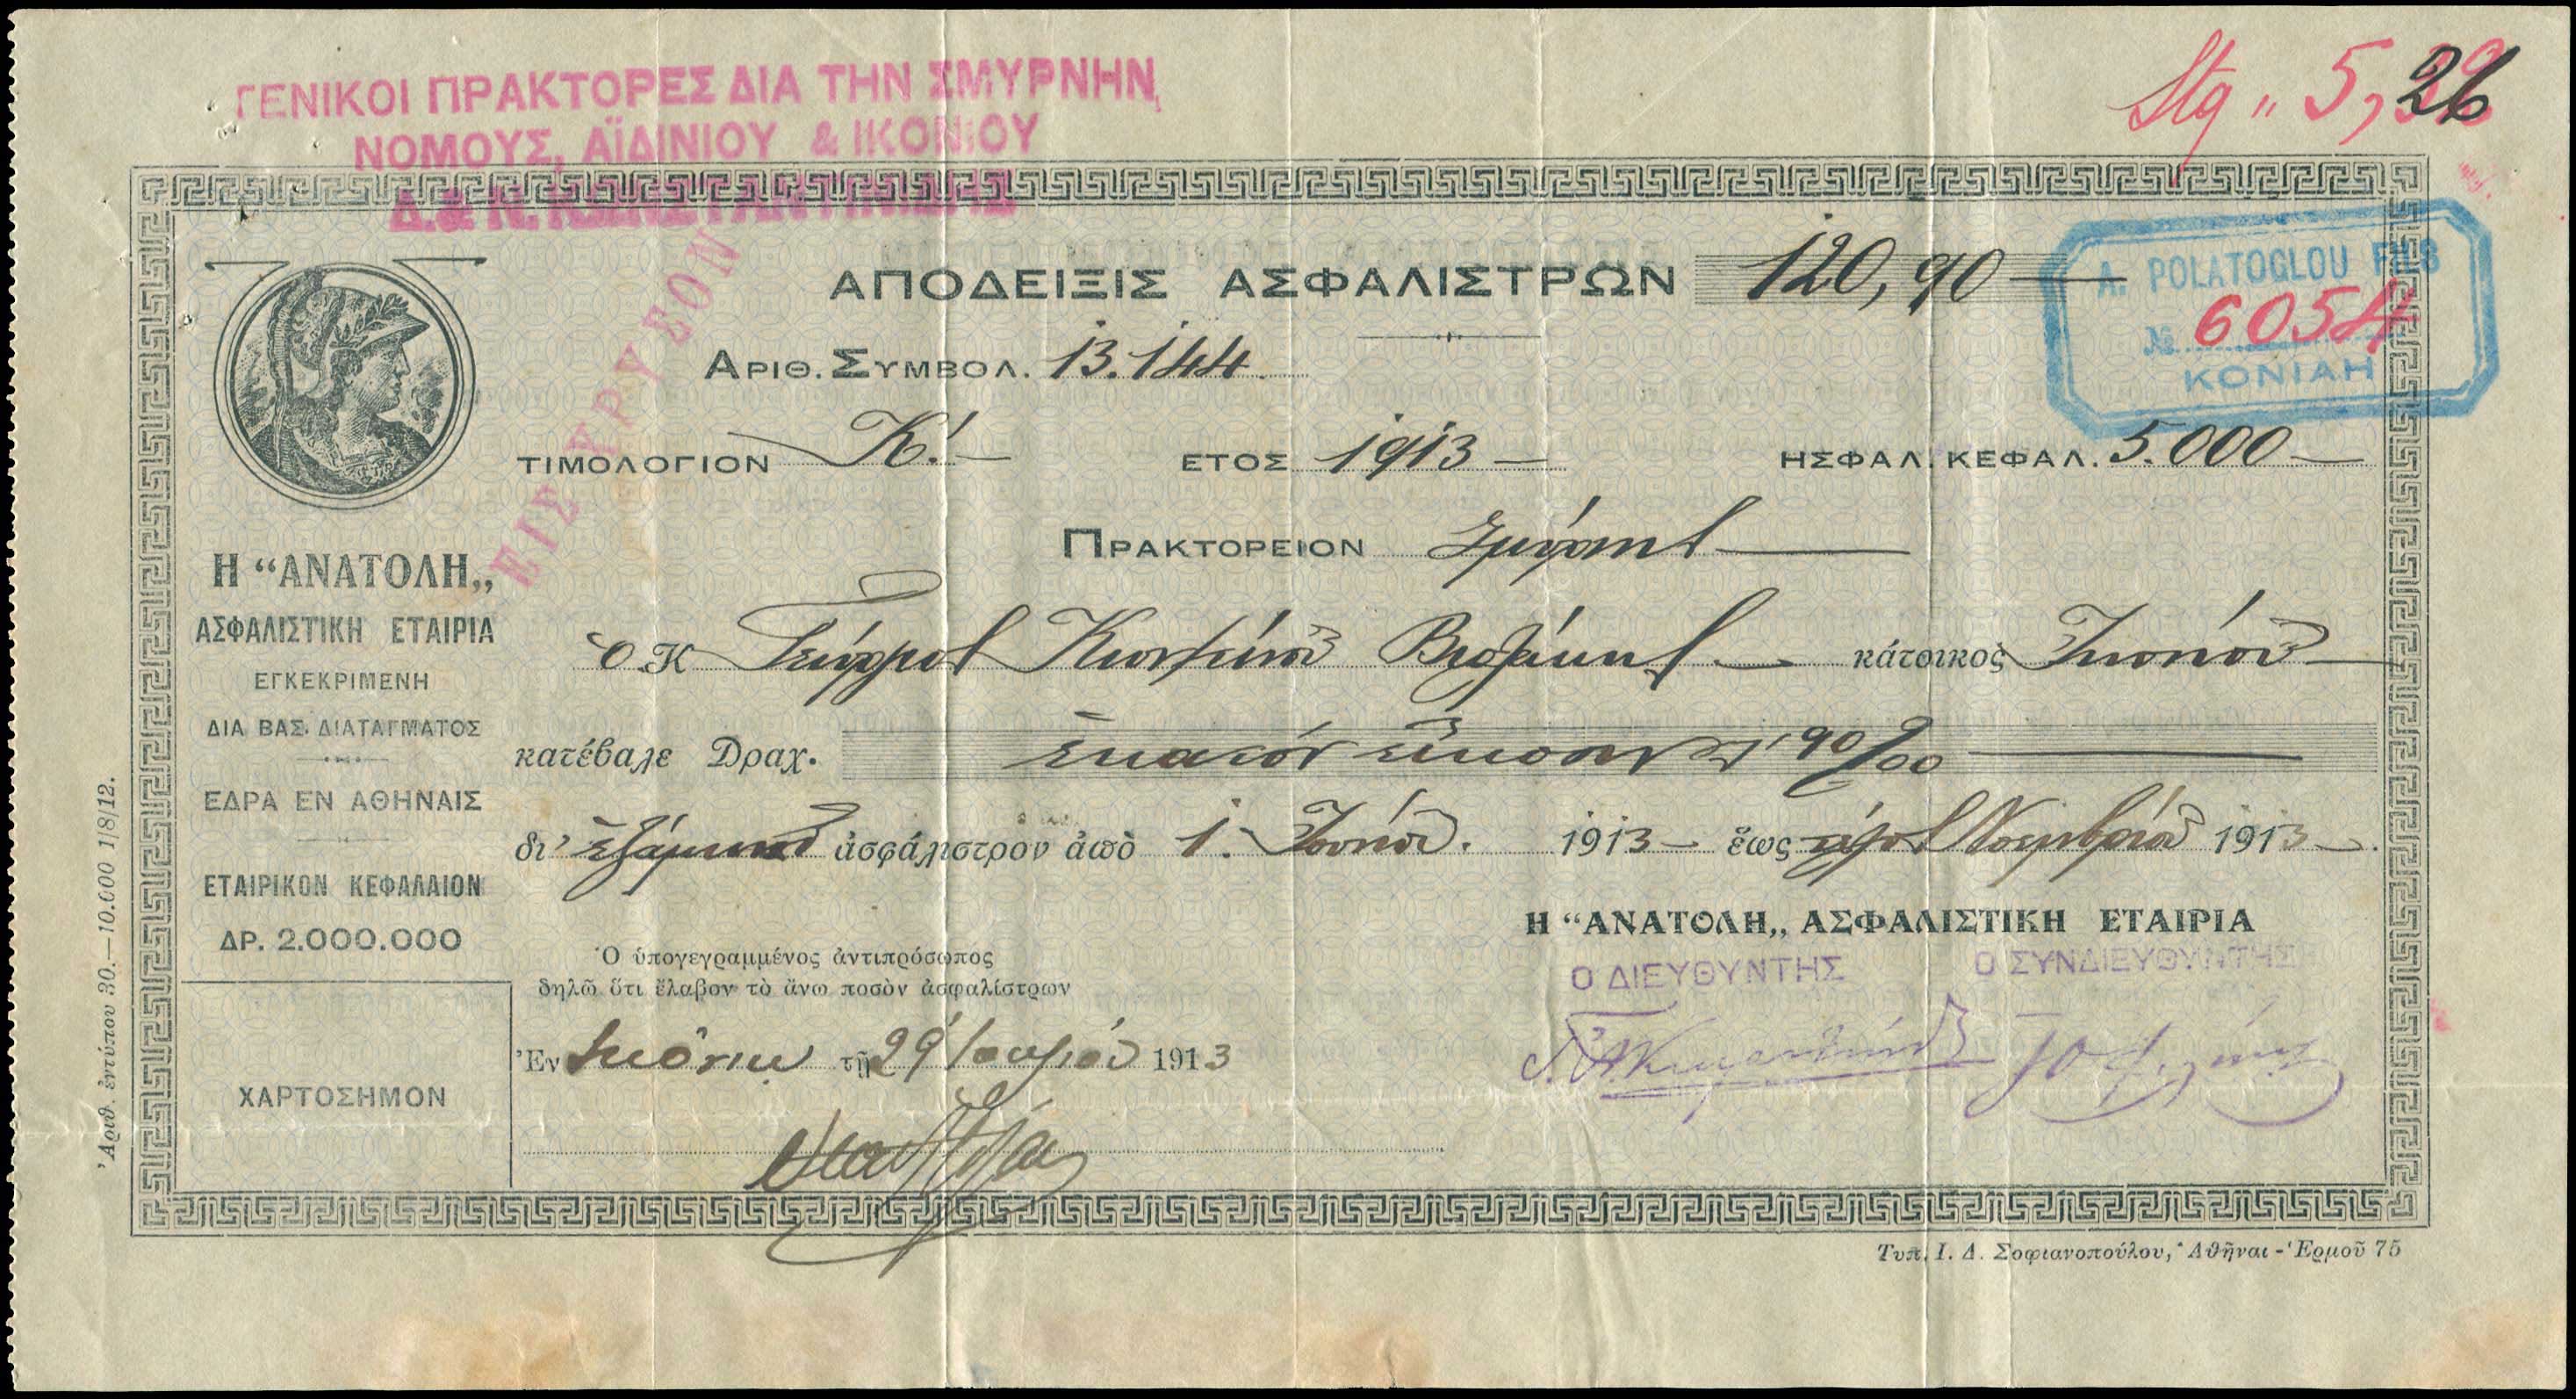 Stg „ 5, 26
ΓΕΝΙΚΟΙ ΠΡΑΚΤΟΡΕΣ ΔΙΑ ΤΗΝ ΣΜΥΡΝΗΝ,
ΝΟΜΟΥΣ, ΑΪΔΙΝΙΟΥ & ΙΚΟΝΙΟΥ
ΕΙΣ ΧΡΥΣΟΝ
A. POLATOGLOU FILS
№ 6054
KONIAH
ΑΠΟΔΕΙΞΙΣ ΑΣΦΑΛΙΣΤΡΩΝ 120,90
ΑΡΙΘ. ΣΥΜΒΟΛ. 13.144
ΤΙΜΟΛΟΓΙΟΝ Κ'. ΕΤΟΣ 1913 ΗΣΦΑΛ. ΚΕΦΑΛ. 5.000
ΠΡΑΚΤΟΡΕΙΟΝ Σμύρνης
Ὁ Κ Γεώργιος κάτοικος Ἰκονίου
κατέβαλε Δραχ. ἑκατὸν εἴκοσιν 90/00
δι' ἑξάμηνον ἀσφάλιστρον ἀπὸ 1. Ἰουνίου. 1913 ἕως Νοεμβρίου 1913
Η “ΑΝΑΤΟΛΗ„
ΑΣΦΑΛΙΣΤΙΚΗ ΕΤΑΙΡΙΑ
ΕΓΚΕΚΡΙΜΕΝΗ
ΔΙΑ ΒΑΣ. ΔΙΑΤΑΓΜΑΤΟΣ
ΕΔΡΑ ΕΝ ΑΘΗΝΑΙΣ
ΕΤΑΙΡΙΚΟΝ ΚΕΦΑΛΑΙΟΝ
ΔΡ. 2.000.000
ΧΑΡΤΟΣΗΜΟΝ
Ὁ ὑπογεγραμμένος ἀντιπρόσωπος
δηλῶ ὅτι ἔλαβον τὸ ἄνω ποσὸν ἀσφαλίστρων
Ἐν Ἰκονίῳ τῇ 29 1913
Η “ΑΝΑΤΟΛΗ„ ΑΣΦΑΛΙΣΤΙΚΗ ΕΤΑΙΡΙΑ
Ο ΔΙΕΥΘΥΝΤΗΣ Ο ΣΥΝΔΙΕΥΘΥΝΤΗΣ
Ἀριθ. ἐντύπου 30.—10.000 1/8/12.
Τυπ. Ι. Δ. Σοφιανοπούλου, Ἀθῆναι - Ἑρμοῦ 75